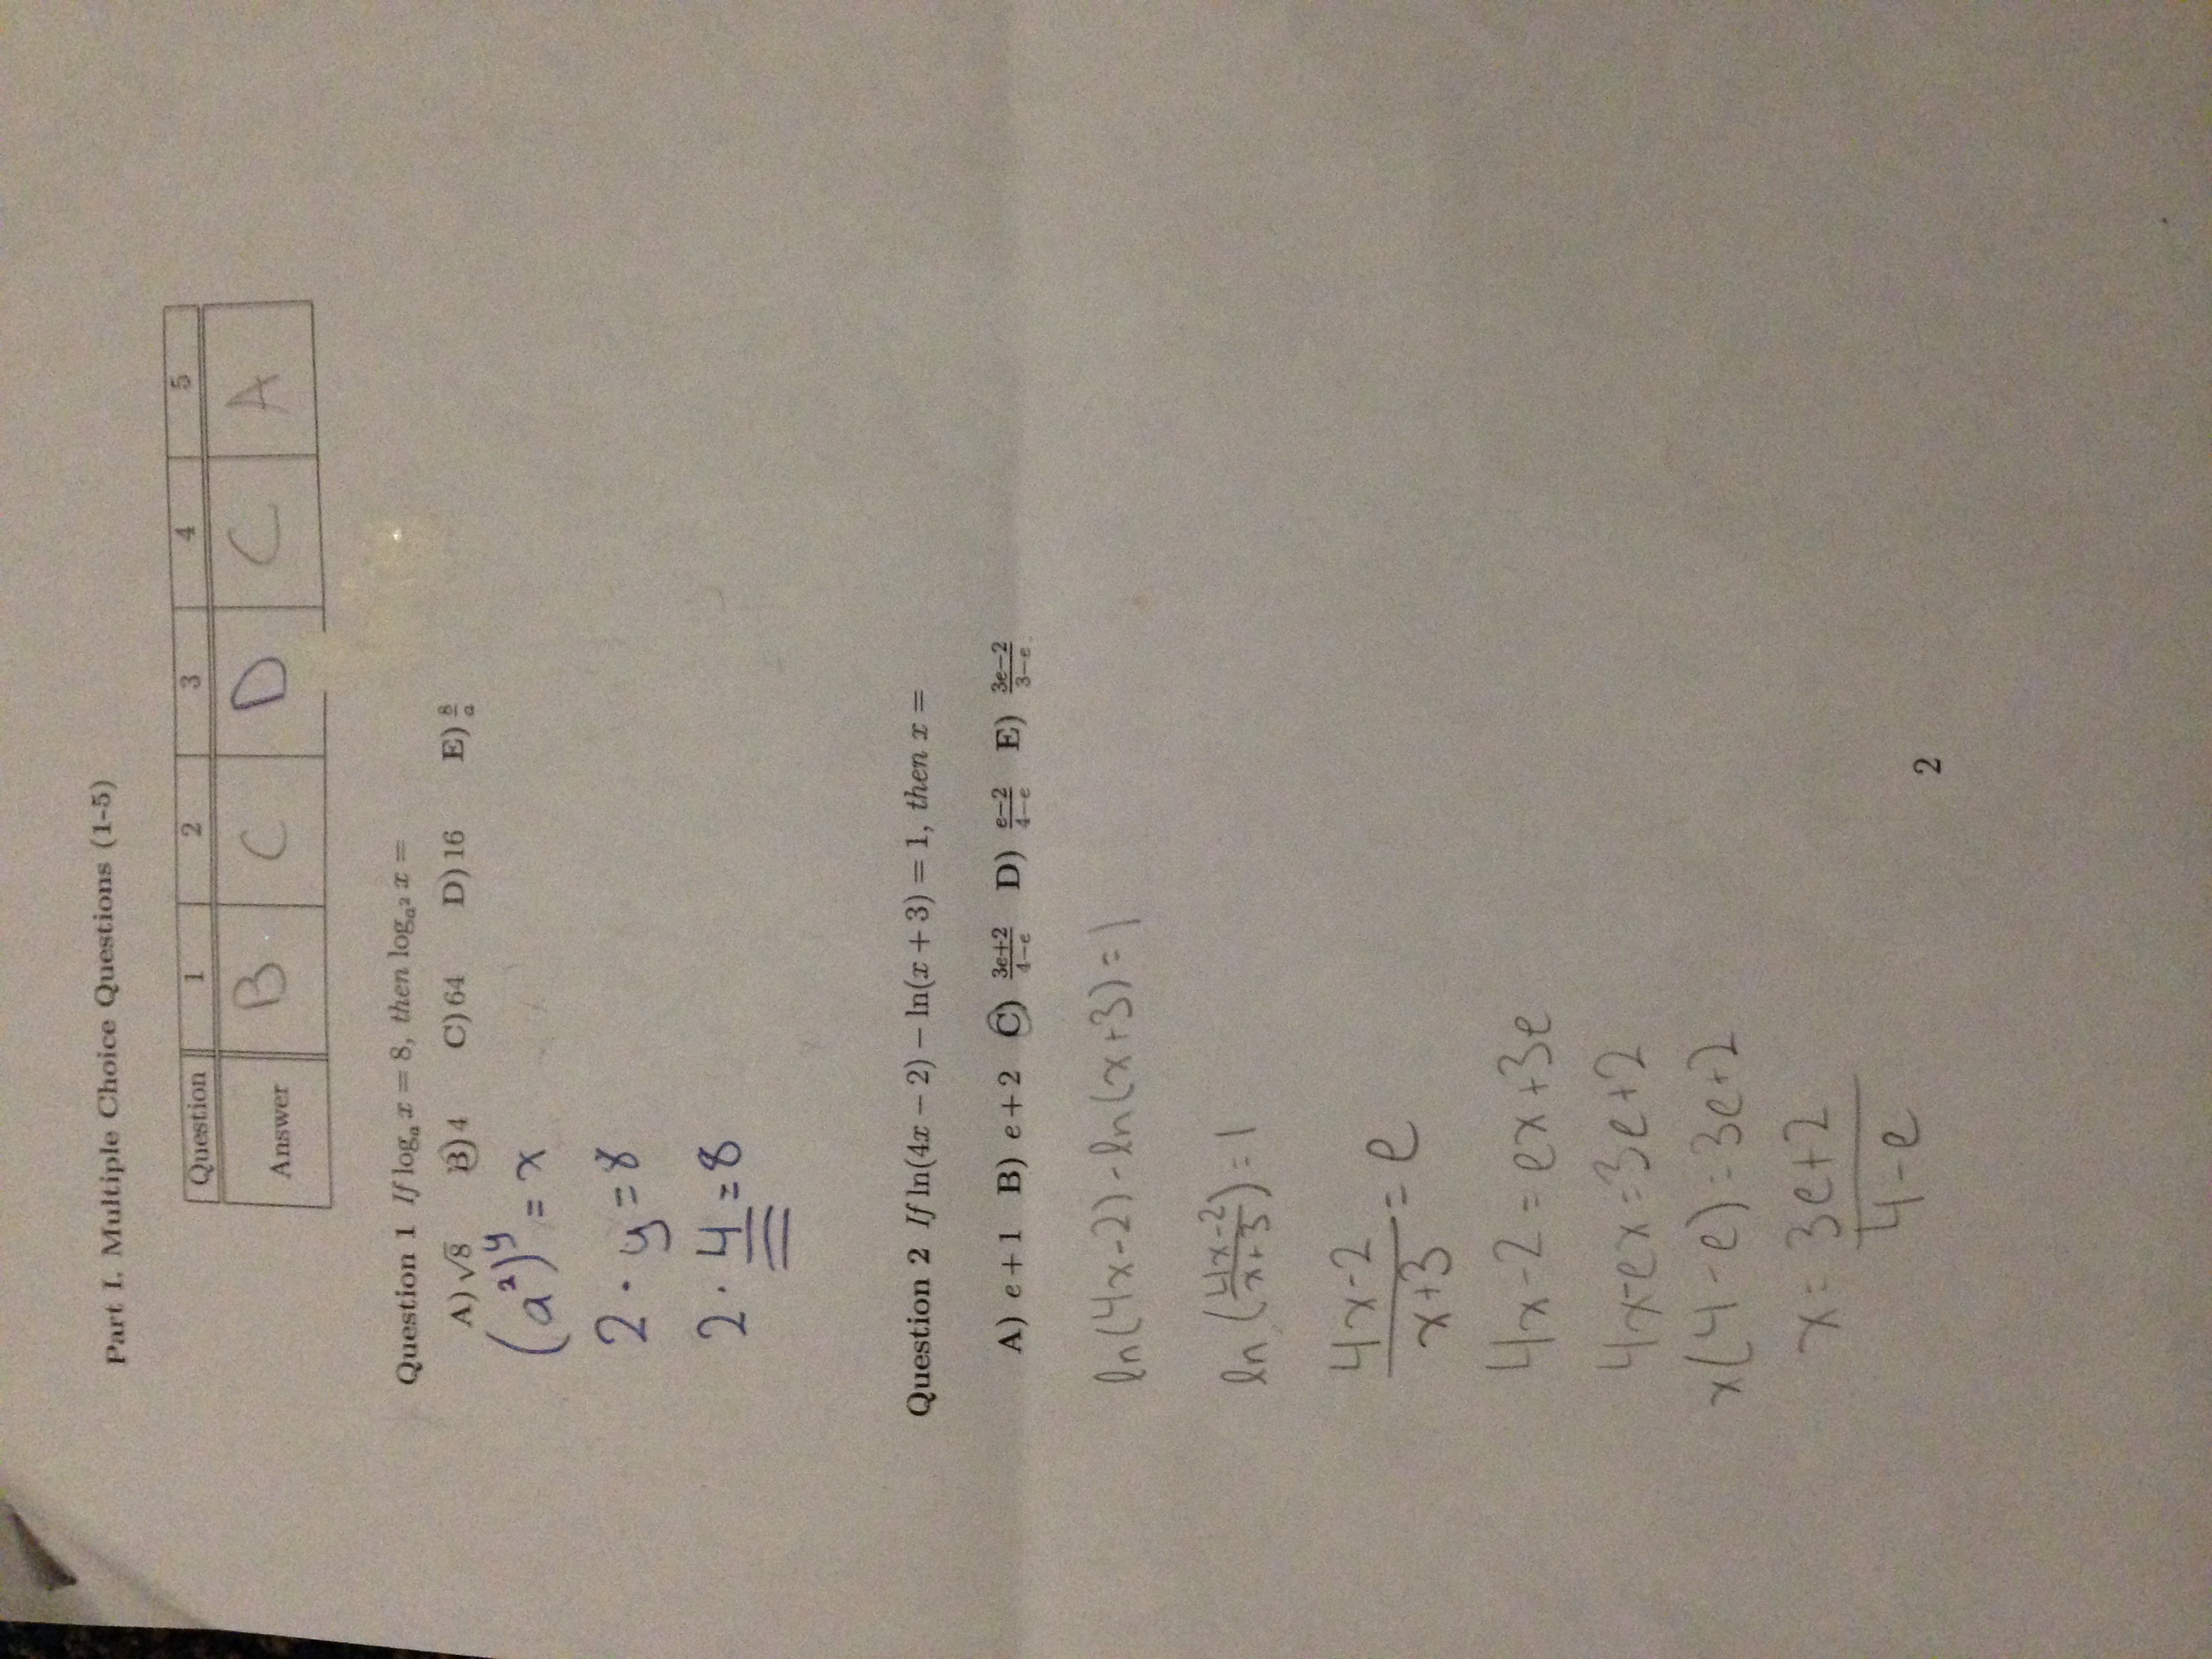 Part I. Multiple Choice Questions (1-5)
Question 1 2 3 4 5
Answer B C D C A
Question 1 If logₐ x = 8, then log_{a²} x =
A) √8 B) 4 C) 64 D) 16 E) 8/a
(a²)^y = x
2 · y = 8
2 · 4 = 8
Question 2 If ln(4x − 2) − ln(x + 3) = 1, then x =
A) e + 1 B) e + 2 C) (3e+2)/(4−e) D) (e−2)/(4−e) E) (3e−2)/(3−e)
ln(4x-2) - ln(x+3) = 1
ln((4x-2)/(x+3)) = 1
(4x-2)/(x+3) = e
4x-2 = ex+3e
4x-ex = 3e+2
x(4-e) = 3e+2
x = (3e+2)/(4-e)
2